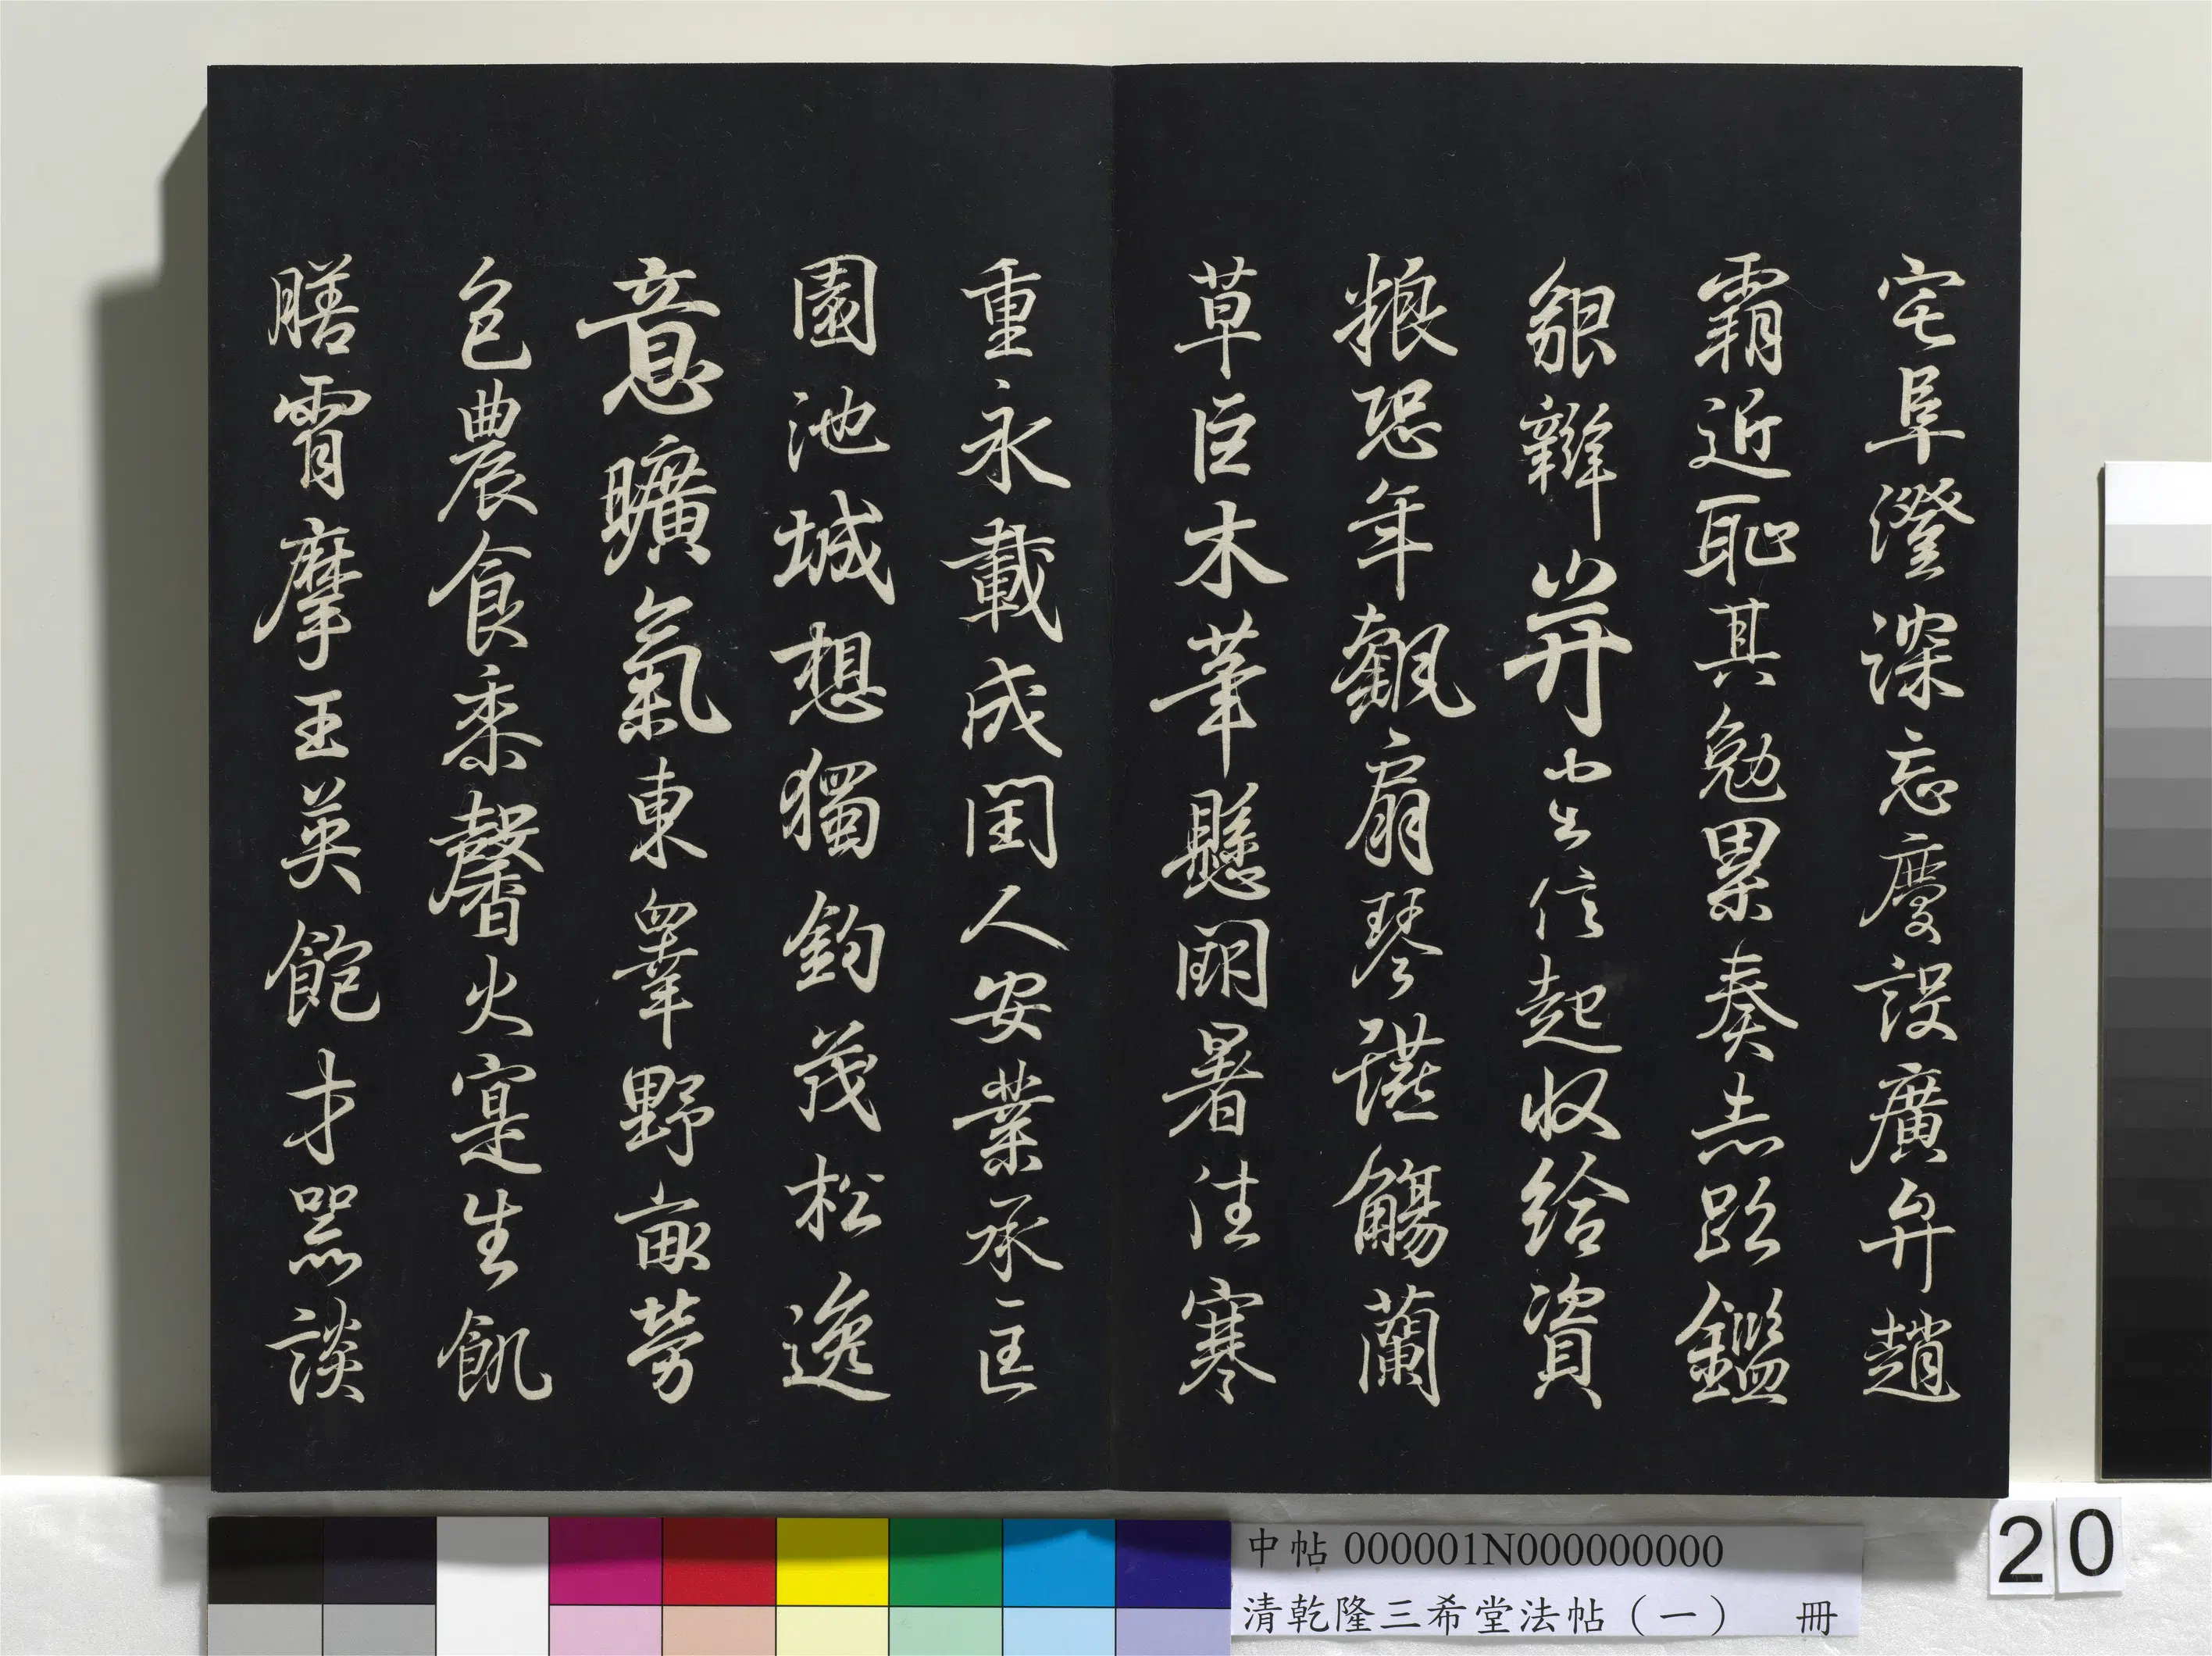 宅阜澄深忘慶設廣弁趙
霸近恥其勉累奏志跂鑑
貇辯并少出信起收給資
粮恐年觀扇琴讌觴蘭
草巨木筆懸闕暑往寒
重永載成閏人安業承匡
園池城想獨鈞茂松逸
意曠氣東睾野畝勞
色農食黍馨火寔生飢
膳霄摩王英飽才器談
中帖 000001N000000000
清乾隆三希堂法帖（一） 冊
20